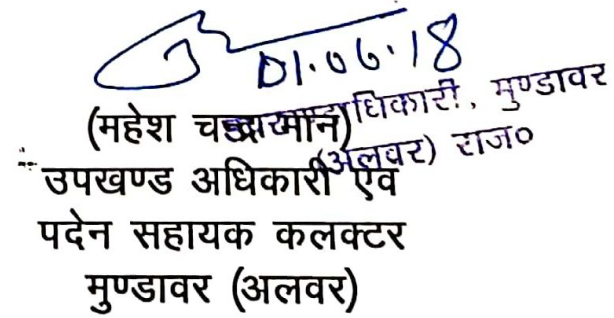 01.06.18
(महेश चन्द्र मान)
उपखण्ड अधिकारी एवं
पदेन सहायक कलक्टर
मुण्डावर (अलवर)
धिकारी, मुण्डावर
(अलवर) राज०